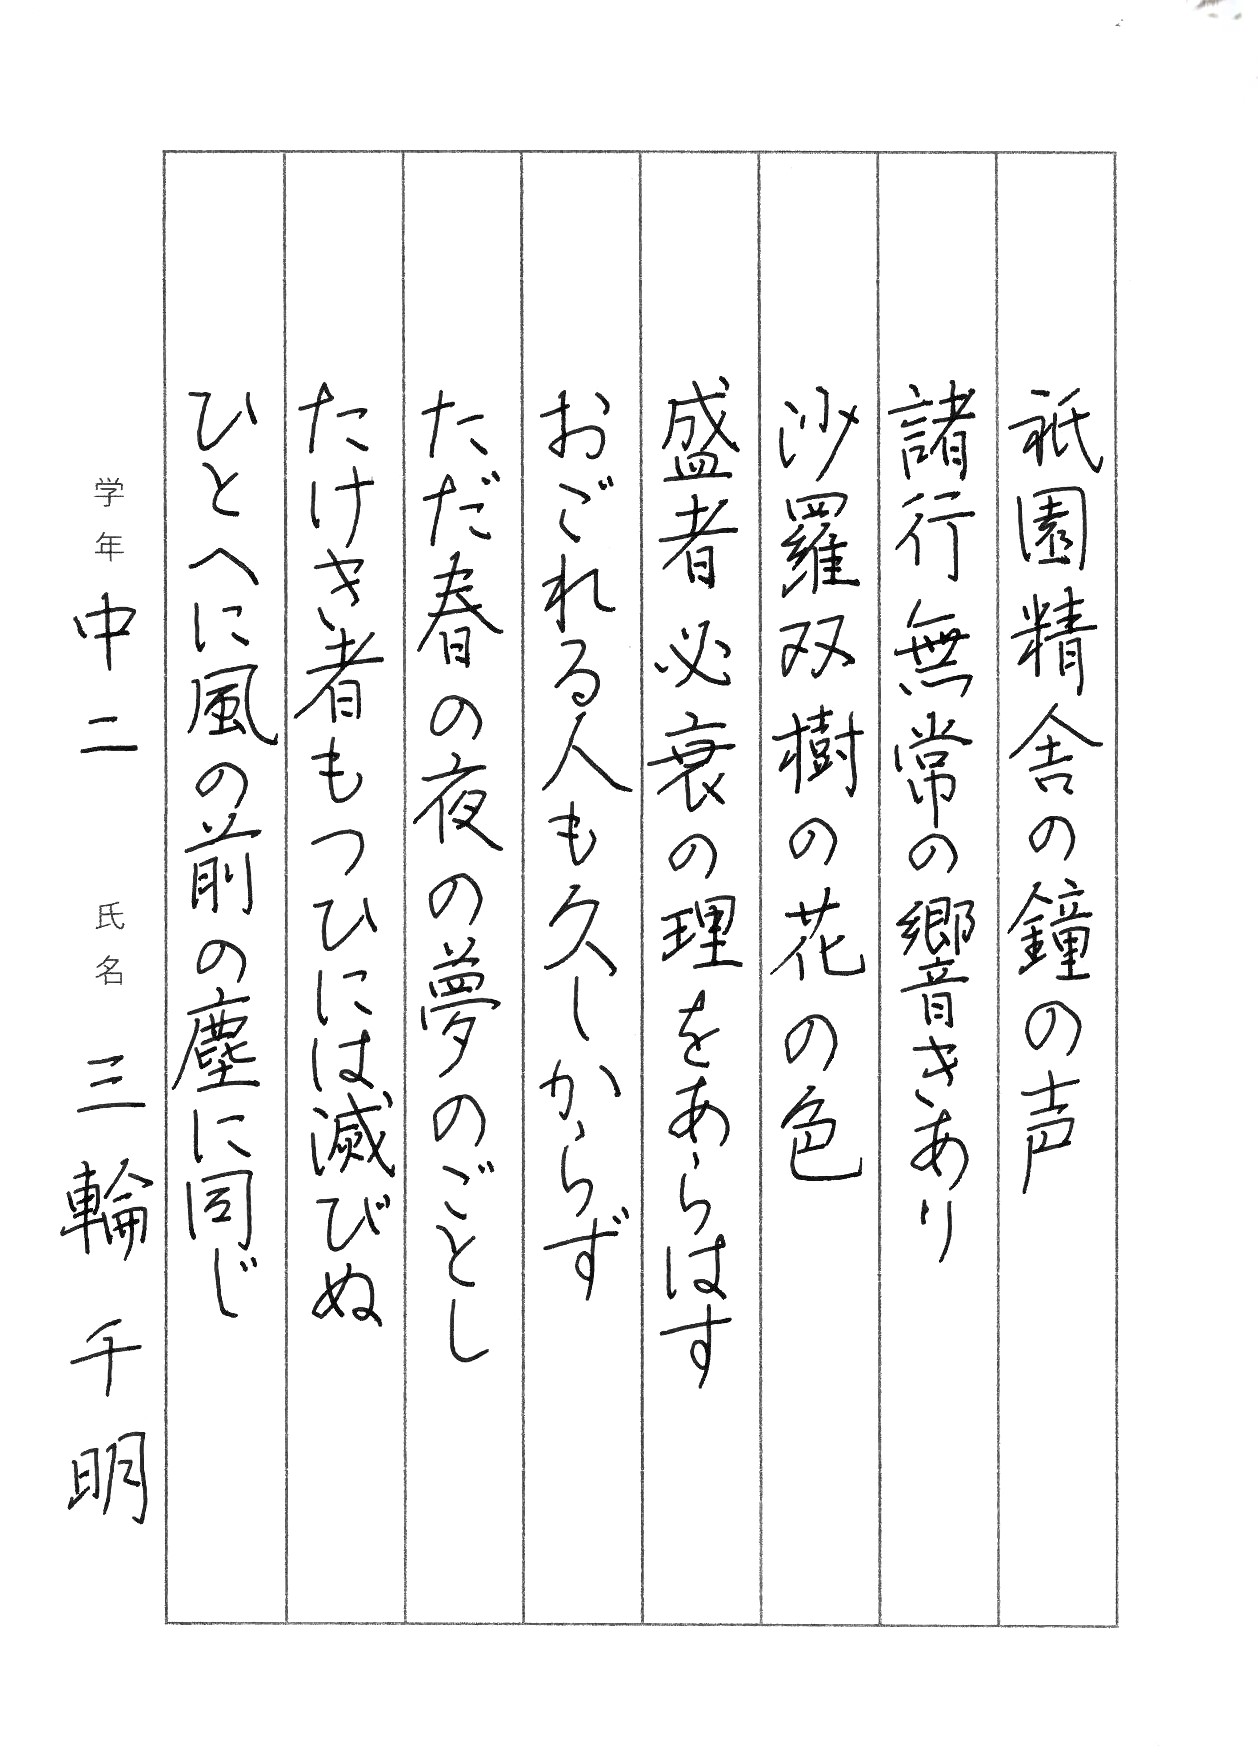 祇園精舎の鐘の声
諸行無常の響きあり
沙羅双樹の花の色
盛者必衰の理をあらはす
おごれる人も久しからず
ただ春の夜の夢のごとし
たけき者もつひには滅びぬ
ひとへに風の前の塵に同じ
学年 中二 氏名 三輪千明